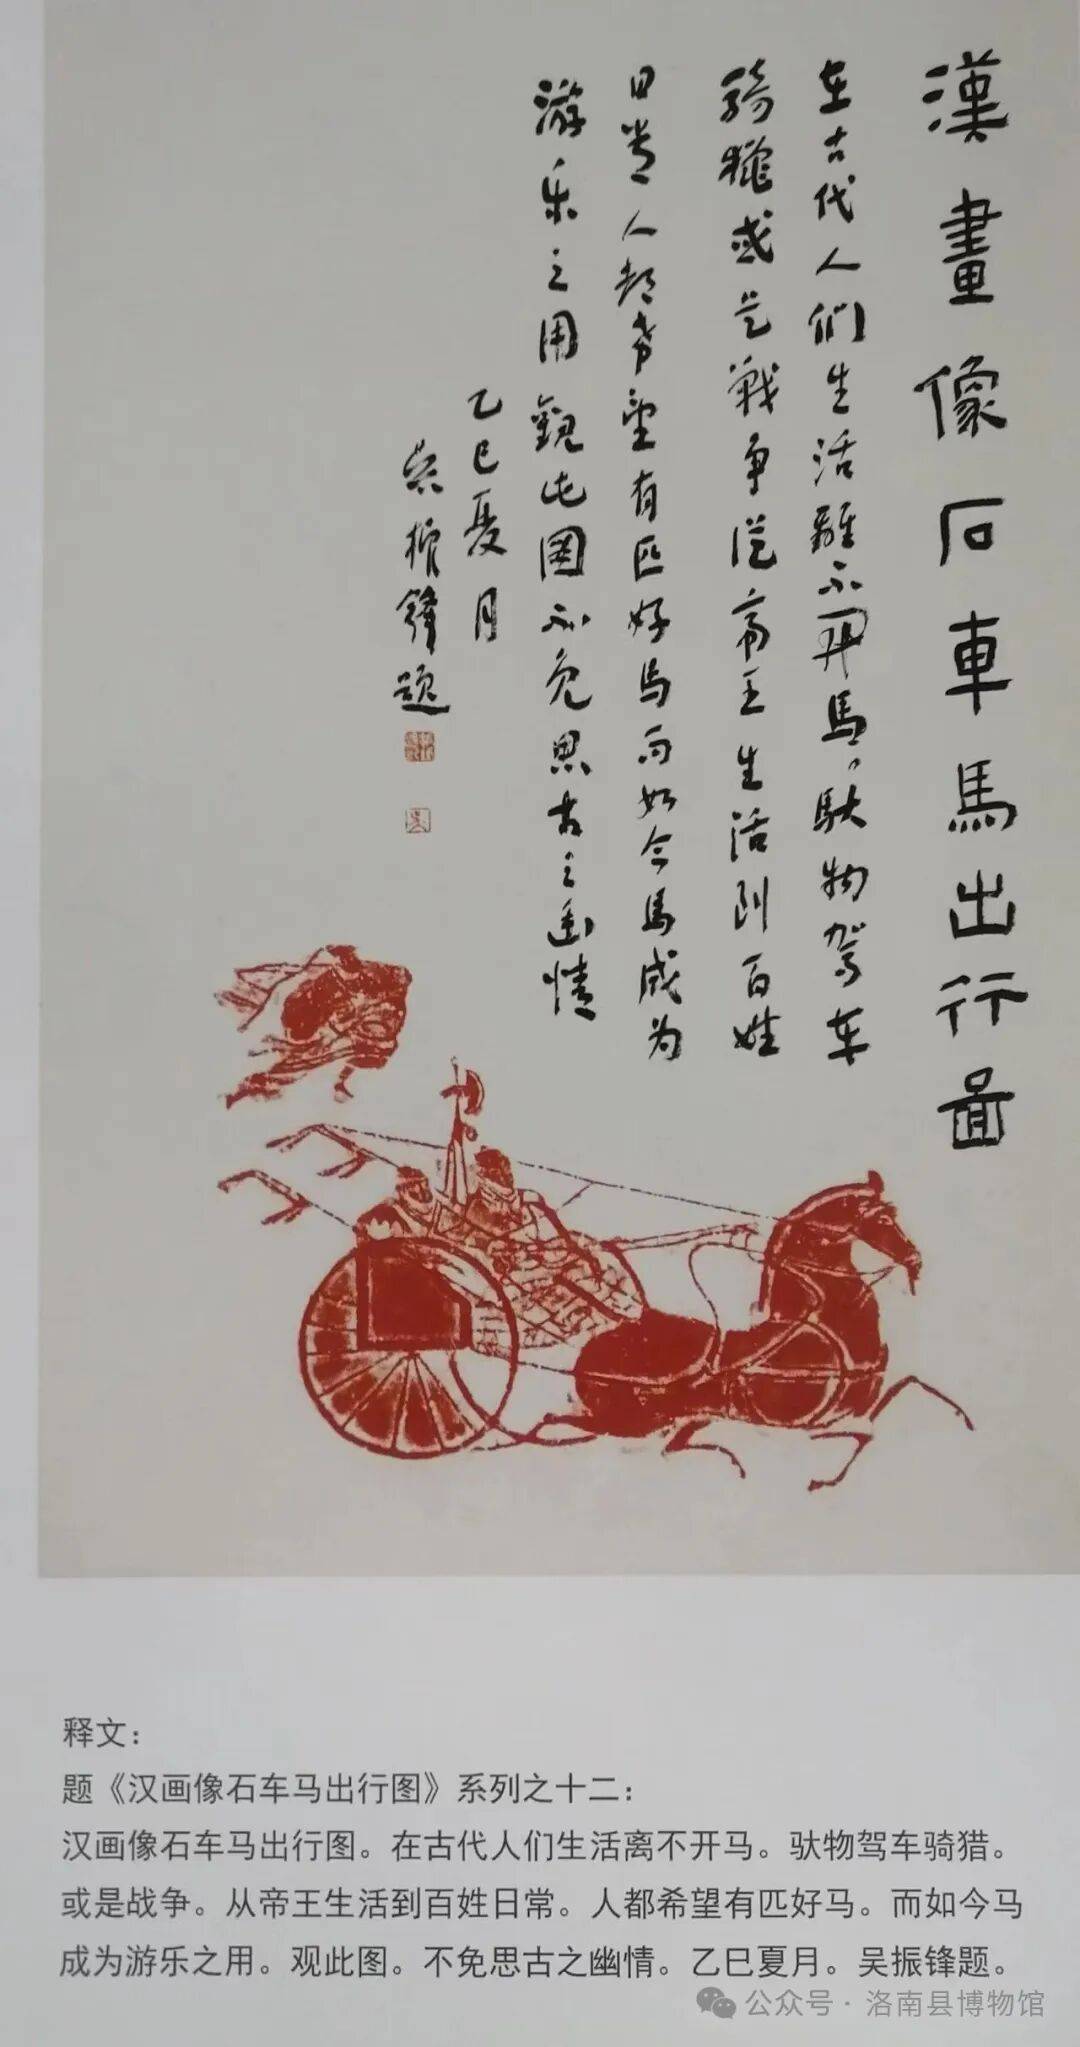 漢畫像石車馬出行圖
在古代人們生活離不開馬馱物驾车
騎獵或是戰争從帝王生活到百姓
日常人都希望有匹好馬而如今馬成为
游乐之用觀此图不免思古之幽情
乙巳夏月
吴振鋒题
释文：
题《汉画像石车马出行图》系列之十二：
汉画像石车马出行图。在古代人们生活离不开马。驮物驾车骑猎。
或是战争。从帝王生活到百姓日常。人都希望有匹好马。而如今马
成为游乐之用。观此图。不免思古之幽情。乙巳夏月。吴振锋题。
公众号·洛南县博物馆